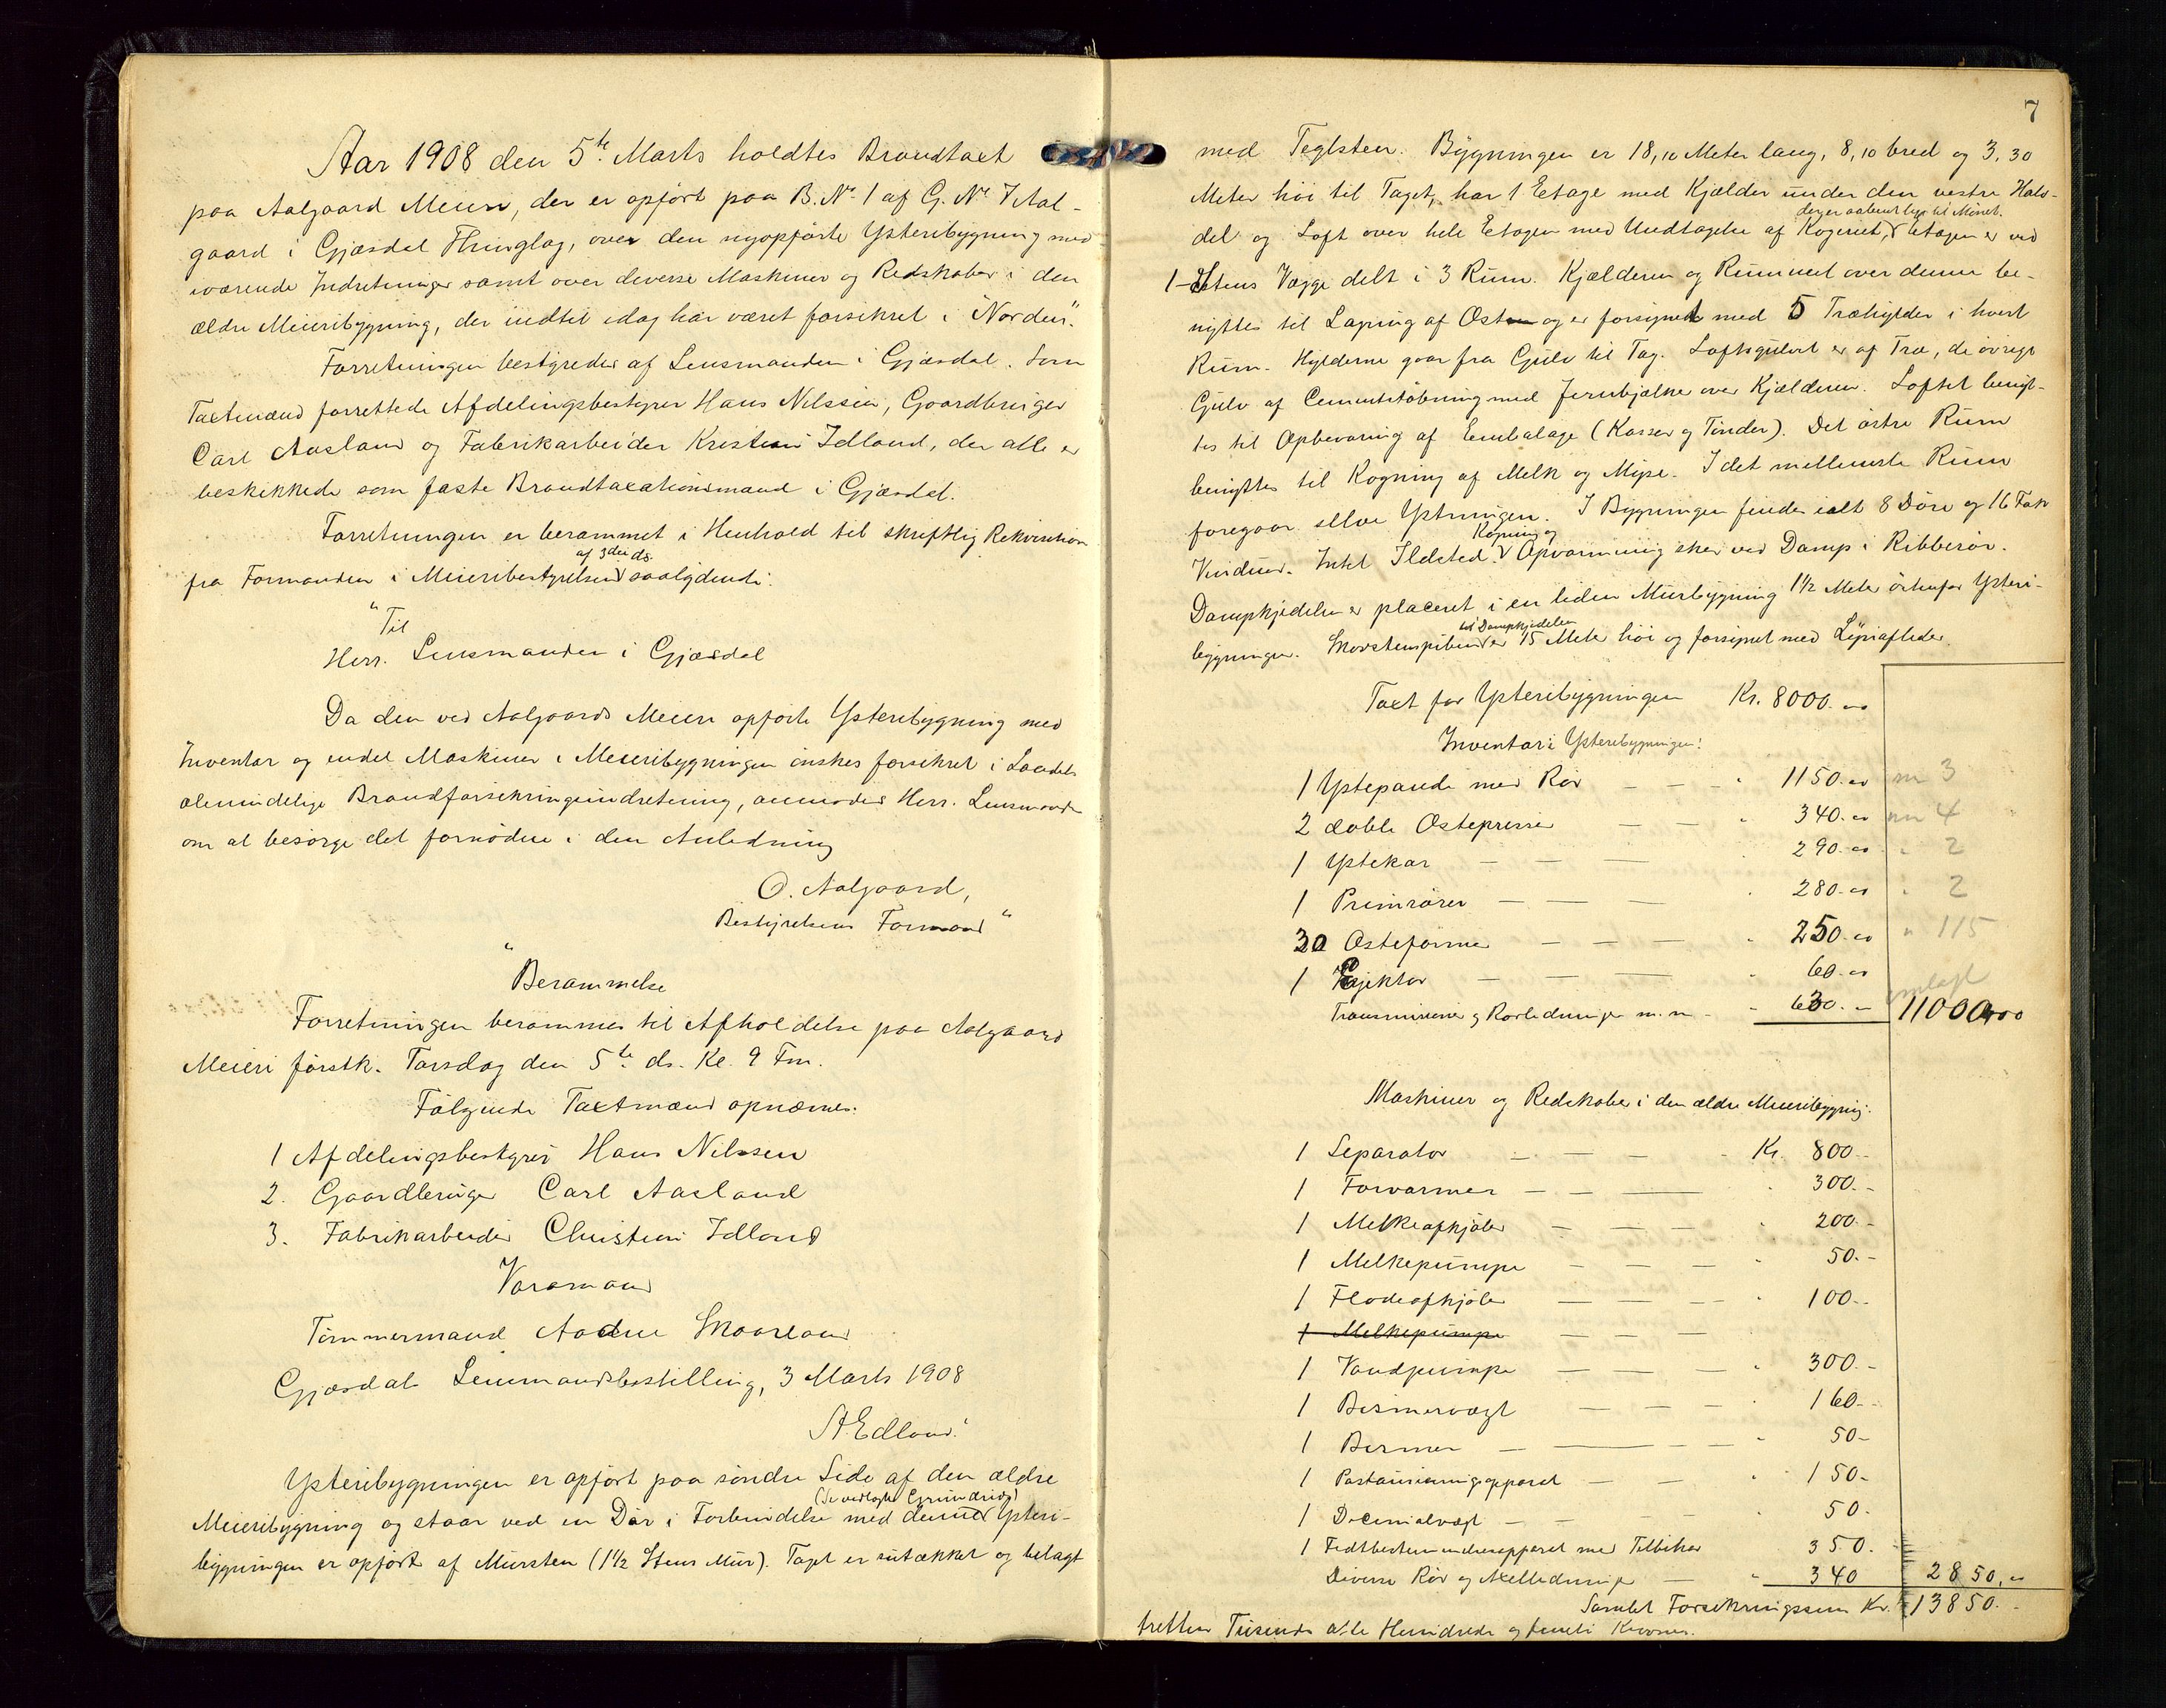 Aar 1908 den 5te Marts holdtes Brandtaxt
paa Aalgaard Meieri, der er opført paa B.No 1 af G.No 7 Aal-
gaard i Gjæsdal Thinglag, over den nyopførte Ysteribygning med
iværende Indretninger samt over diverse Maskiner og Redskaber i den
ældre Meieribygning, der indtil idag har været forsikret i "Norden".
Forretningen bestyredes af Lensmanden i Gjæsdal. Som
Taxtmænd forrettede Afdelingsbestyrer Hans Nilssen, Gaardbruger
Carl Aasland og Fabrikarbeider Kristian Idland, der alle er
beskikkede som faste Brandtaxationsmænd i Gjæsdal.
Forretningen er berammet i Henhold til skriftlig Rekvisition
af 3die ds.
fra Formanden i Meieribestyrelsen saalydende:
"Til
Herr. Lensmanden i Gjæsdal
Da den ved Aalgaards Meieri opførte Ysteribygning med
Inventar og endel Maskiner i Meieribygningen ønskes forsikret i Landets
almindelige Brandforsikringsindretning, anmodes Herr. Lensmanden
om at besørge det fornødne i den Anledning
O. Aalgaard,
Bestyrelsens Formand"
"Berammelse
Forretningen berammes til Afholdelse paa Aalgaard
Meieri førstk. Torsdag den 5te ds. Kl. 9 Fm.
Følgende Taxtmænd opnævnes:
1 Afdelingsbestyrer Hans Nilssen
2. Gaardbruger Carl Aasland
3. Fabrikarbeider Christian Idland
Varamand
Tømmermand Aadne Skaarland
Gjæsdal Lensmandsbestilling, 3 Marts 1908
A. Edland.
Ysteribygningen er opført paa søndre Side af den ældre
(Se vedlagte Grundrids)
Meieribygning og staar ved en Dør i Forbindelse med denne Ysteri-
bygningen er opført af Mursten (1½ Stens Mur). Taget er sutækket og belagt
7
med Teglsten. Bygningen er 18,10 Meter lang, 8,10 bred og 3,30
Meter høi til Taget, har 1 Etage med Kjælder under den vestre Halv-
der er aabent lige til Mønet.
del og Loft over hele Etagen med Undtagelse af Kogeriet, Etagen er ved
1-Stens Vægge delt i 3 Rum. Kjælderen og Rummet over denne be-
nyttes til Lagring af Ost og er forsynet med 5 Træhylder i hvert
Rum. Hylderne gaar fra Gulv til Tag. Loftsgulvet er af Træ, de øvrige
Gulv af Cementstøbning med Jernbjælker over Kjælderen. Loftet benyt-
tes til Opbevaring af Emballage (Kasser og Tønder). Det østre Rum
benyttes til Kogning af Melk og Myse. I det mellemste Rum
foregaar selve Ystningen. I Bygningen findes ialt 8 Døre og 16 Fak
Kogning og
Vinduer. Intet Ildsted. Opvarmning sker ved Damp i Ribberør.
Dampkjedelen er placeret i en liden Murbygning 1½ Meter østenfor Ysteri-
til Dampkjedelen
bygningen. Skorstenspiben er 15 Meter høi og forsynet med Lynafleder.
Taxt for Ysteribygningen Kr. 8000.00
Inventar i Ysteribygningen:
1 Ystepande med Rør — — " 1150.00 nr 3
2 doble Ostepresser — — " 340.00 nr 4
1 Ystekar — — — " 290.00 " 2
1 Primrører — — — " 280.00 " 2
30 Osteforme — — — " 250.00 " 115
1 Ejektor — — — " 60.00
Transmisioner og Rørledninger m.m. " 630.00 11000,00
Maskiner og Redskaber i den ældre Meieribygning:
1 Separator — — — Kr. 800.-
1 Forvarmer — — — " 300.-
1 Melkeafkjøler — — — " 200.-
1 Melkepumpe — — — " 50.-
1 Flødeafkjøler — — — " 100.-
1 Melkepumpe — — —
1 Vandpumpe — — — " 300.-
1 Bismervægt — — — " 160.-
1 Bismer — — — " 50-
1 Pasteuriseringsapparat — — " 150-
1 Decimalvægt — — — 50.
1 Fedtbestemmelsesapparat med Tilbehør 350.
Diverse Rør og Axelledninger — " 340 2850,00
Samlet Forsikringssum Kr. 13850.-
tretten Tusinde otte Hundrede og femti Kroner.